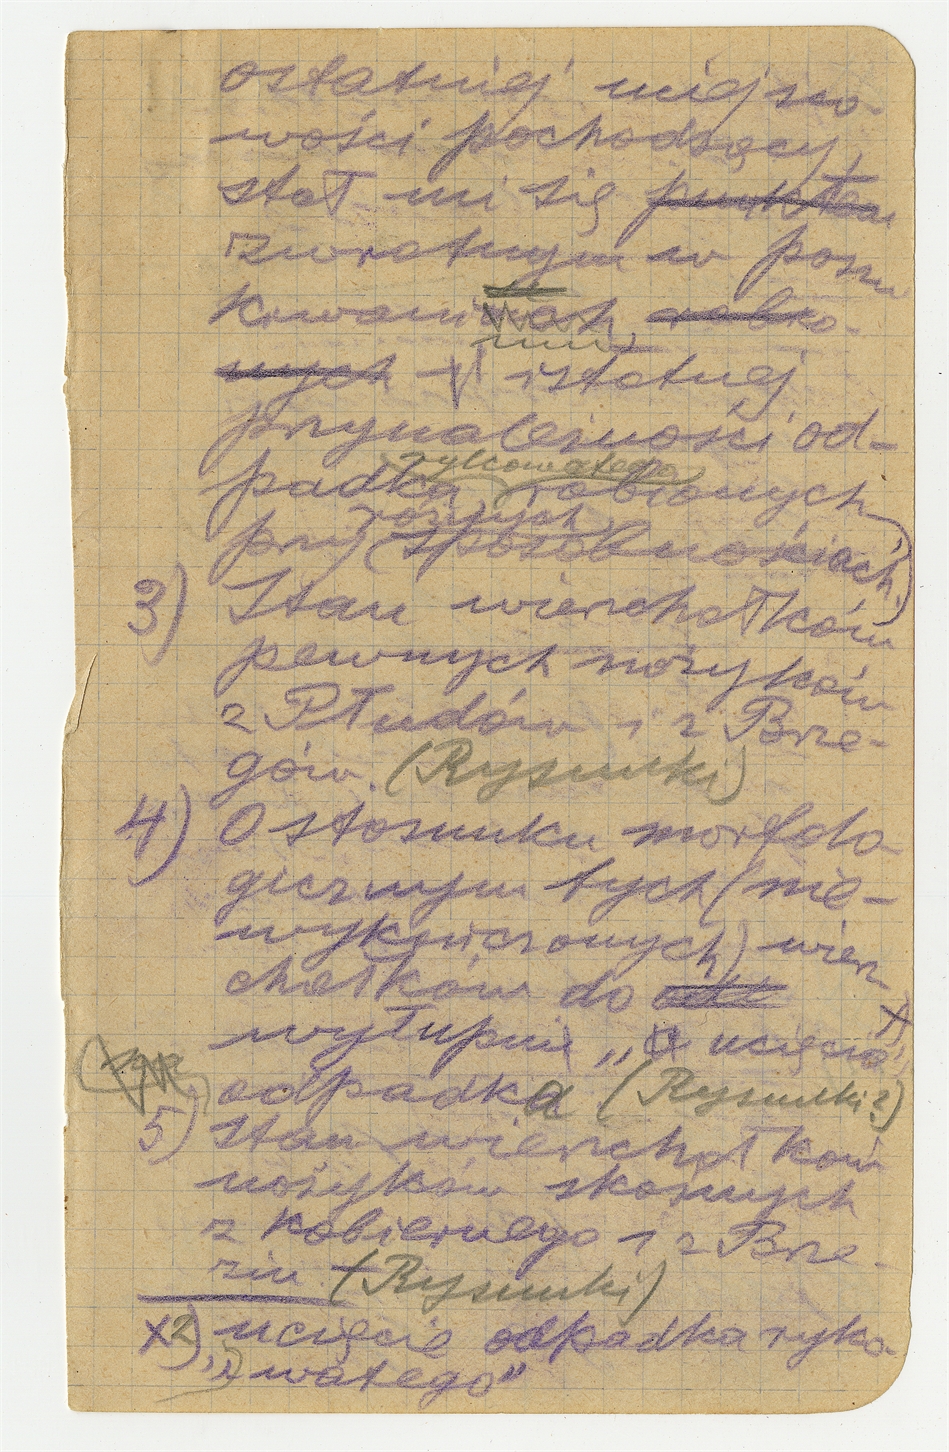 ostatniej miejsco-
wości pochodzący,
stał mi się punktem
zwrotnym w poszu
kiwaniach robio-
nych istotnej
przynależności od-
padka rylcowatego robionych
przy różnych sposobnościach.)
3) Stan wierzchołków
pewnych nożyków
z Płudów i z Brze-
gów. (Rysunki)
4) O stosunku morfolo-
gicznym tych (nie-
wykończonych) wierz
chołków do
wyłupni „ucięcia” x)
odpadka (Rysunki?)
5) Stan wierzchołków
nożyków skośnych
z Kobiernego i z Brze-
zin. (Rysunki)
x2) ucięcie odpadka rylco-
„watego”